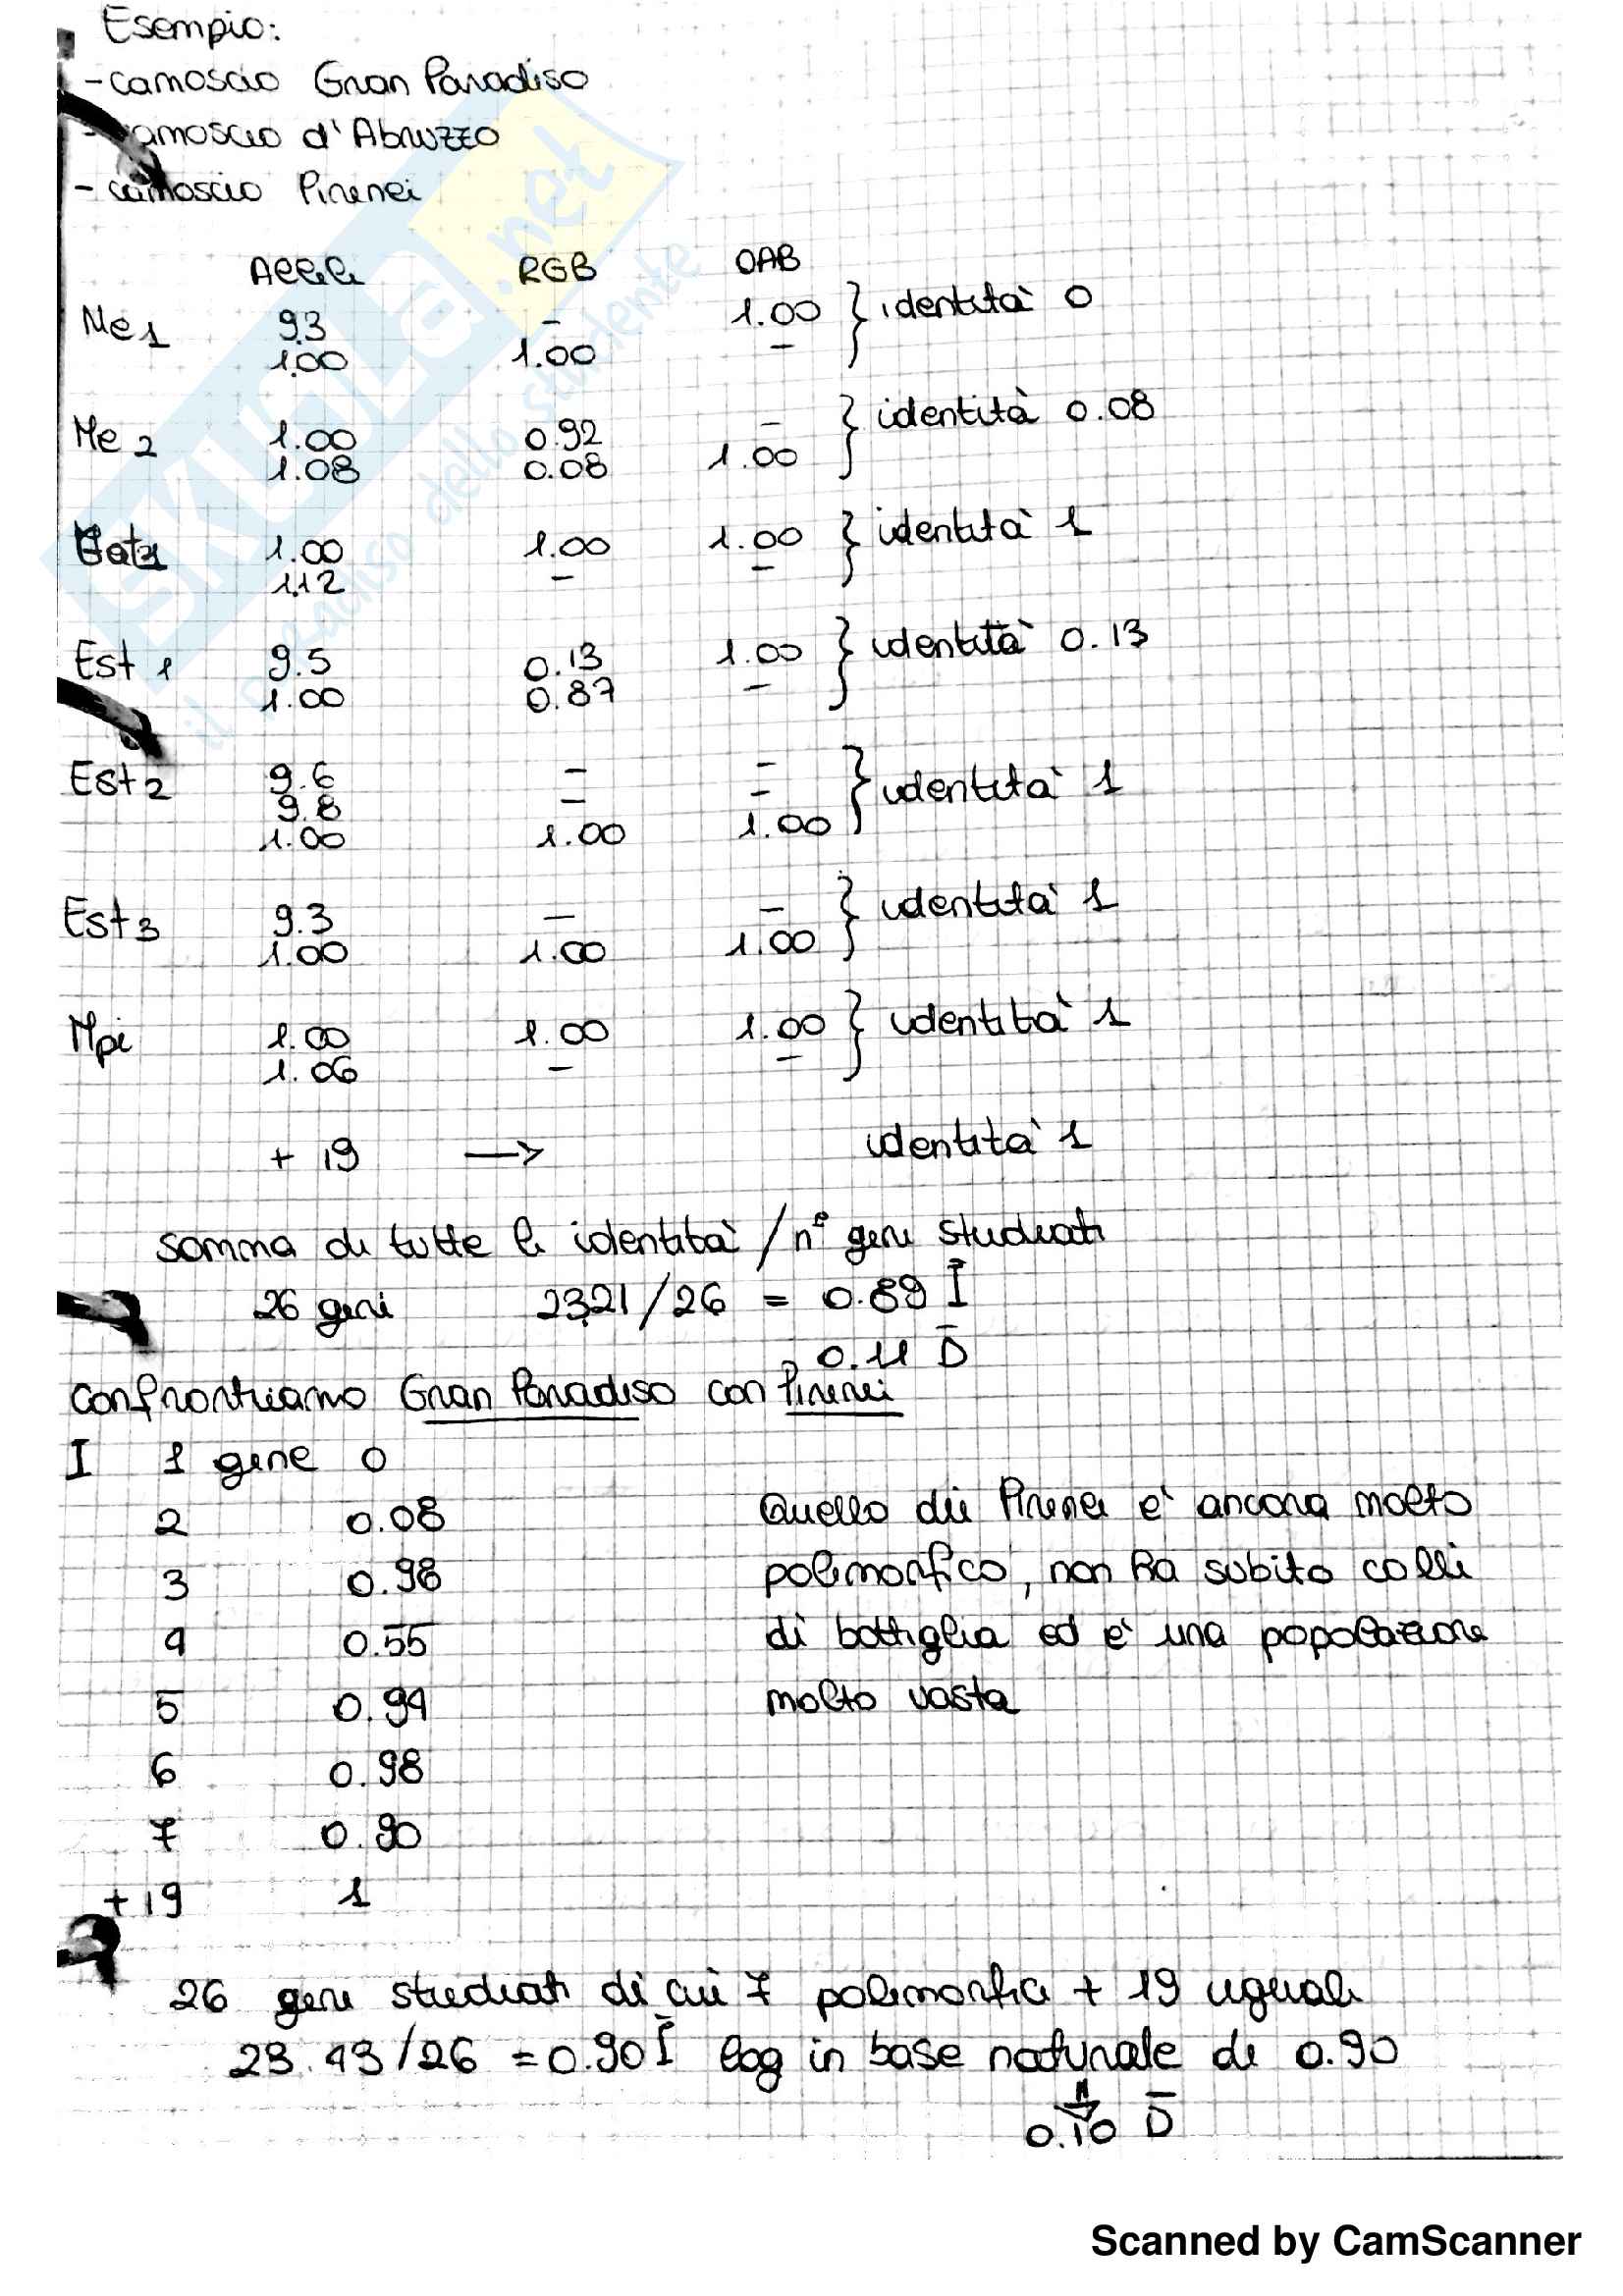 Esempio:
- camoscio Gran Paradiso
- camoscio d'Abruzzo
- camoscio Pirenei
Alleli RGB OAB
Me1 93 - 1.00 } identità 0
1.00 1.00 -
Me2 1.00 0.92 - } identità 0.08
1.08 0.08 1.00
1.00 1.00 1.00 } identità 1
1.12 - -
Est1 9.5 0.13 1.00 } identità 0.13
1.00 0.87 -
Est2 9.6 - - } identità 1
9.8 - -
1.00 1.00 1.00
Est3 9.3 - - } identità 1
1.00 1.00 1.00
Mpi 1.00 1.00 1.00 } identità 1
1.06 - -
+ 19 → identità 1
somma di tutte le identità / n° geni studiati
26 geni 23.21/26 = 0.89 Ī
0.11 D̄
Confrontiamo Gran Paradiso con Pirenei
I 1 gene 0
2 0.08
3 0.98
4 0.55
5 0.94
6 0.98
7 0.90
+ 19 1
Quello dei Pirenei è ancora molto
polimorfico, non ha subito colli
di bottiglia ed è una popolazione
molto vasta
26 geni studiati di cui 7 polimorfici + 19 uguali
23.43/26 = 0.90 Ī log in base naturale di 0.90
⇓
0.10 D̄
SKUOLA.net
il paradiso dello studente
Scanned by CamScanner